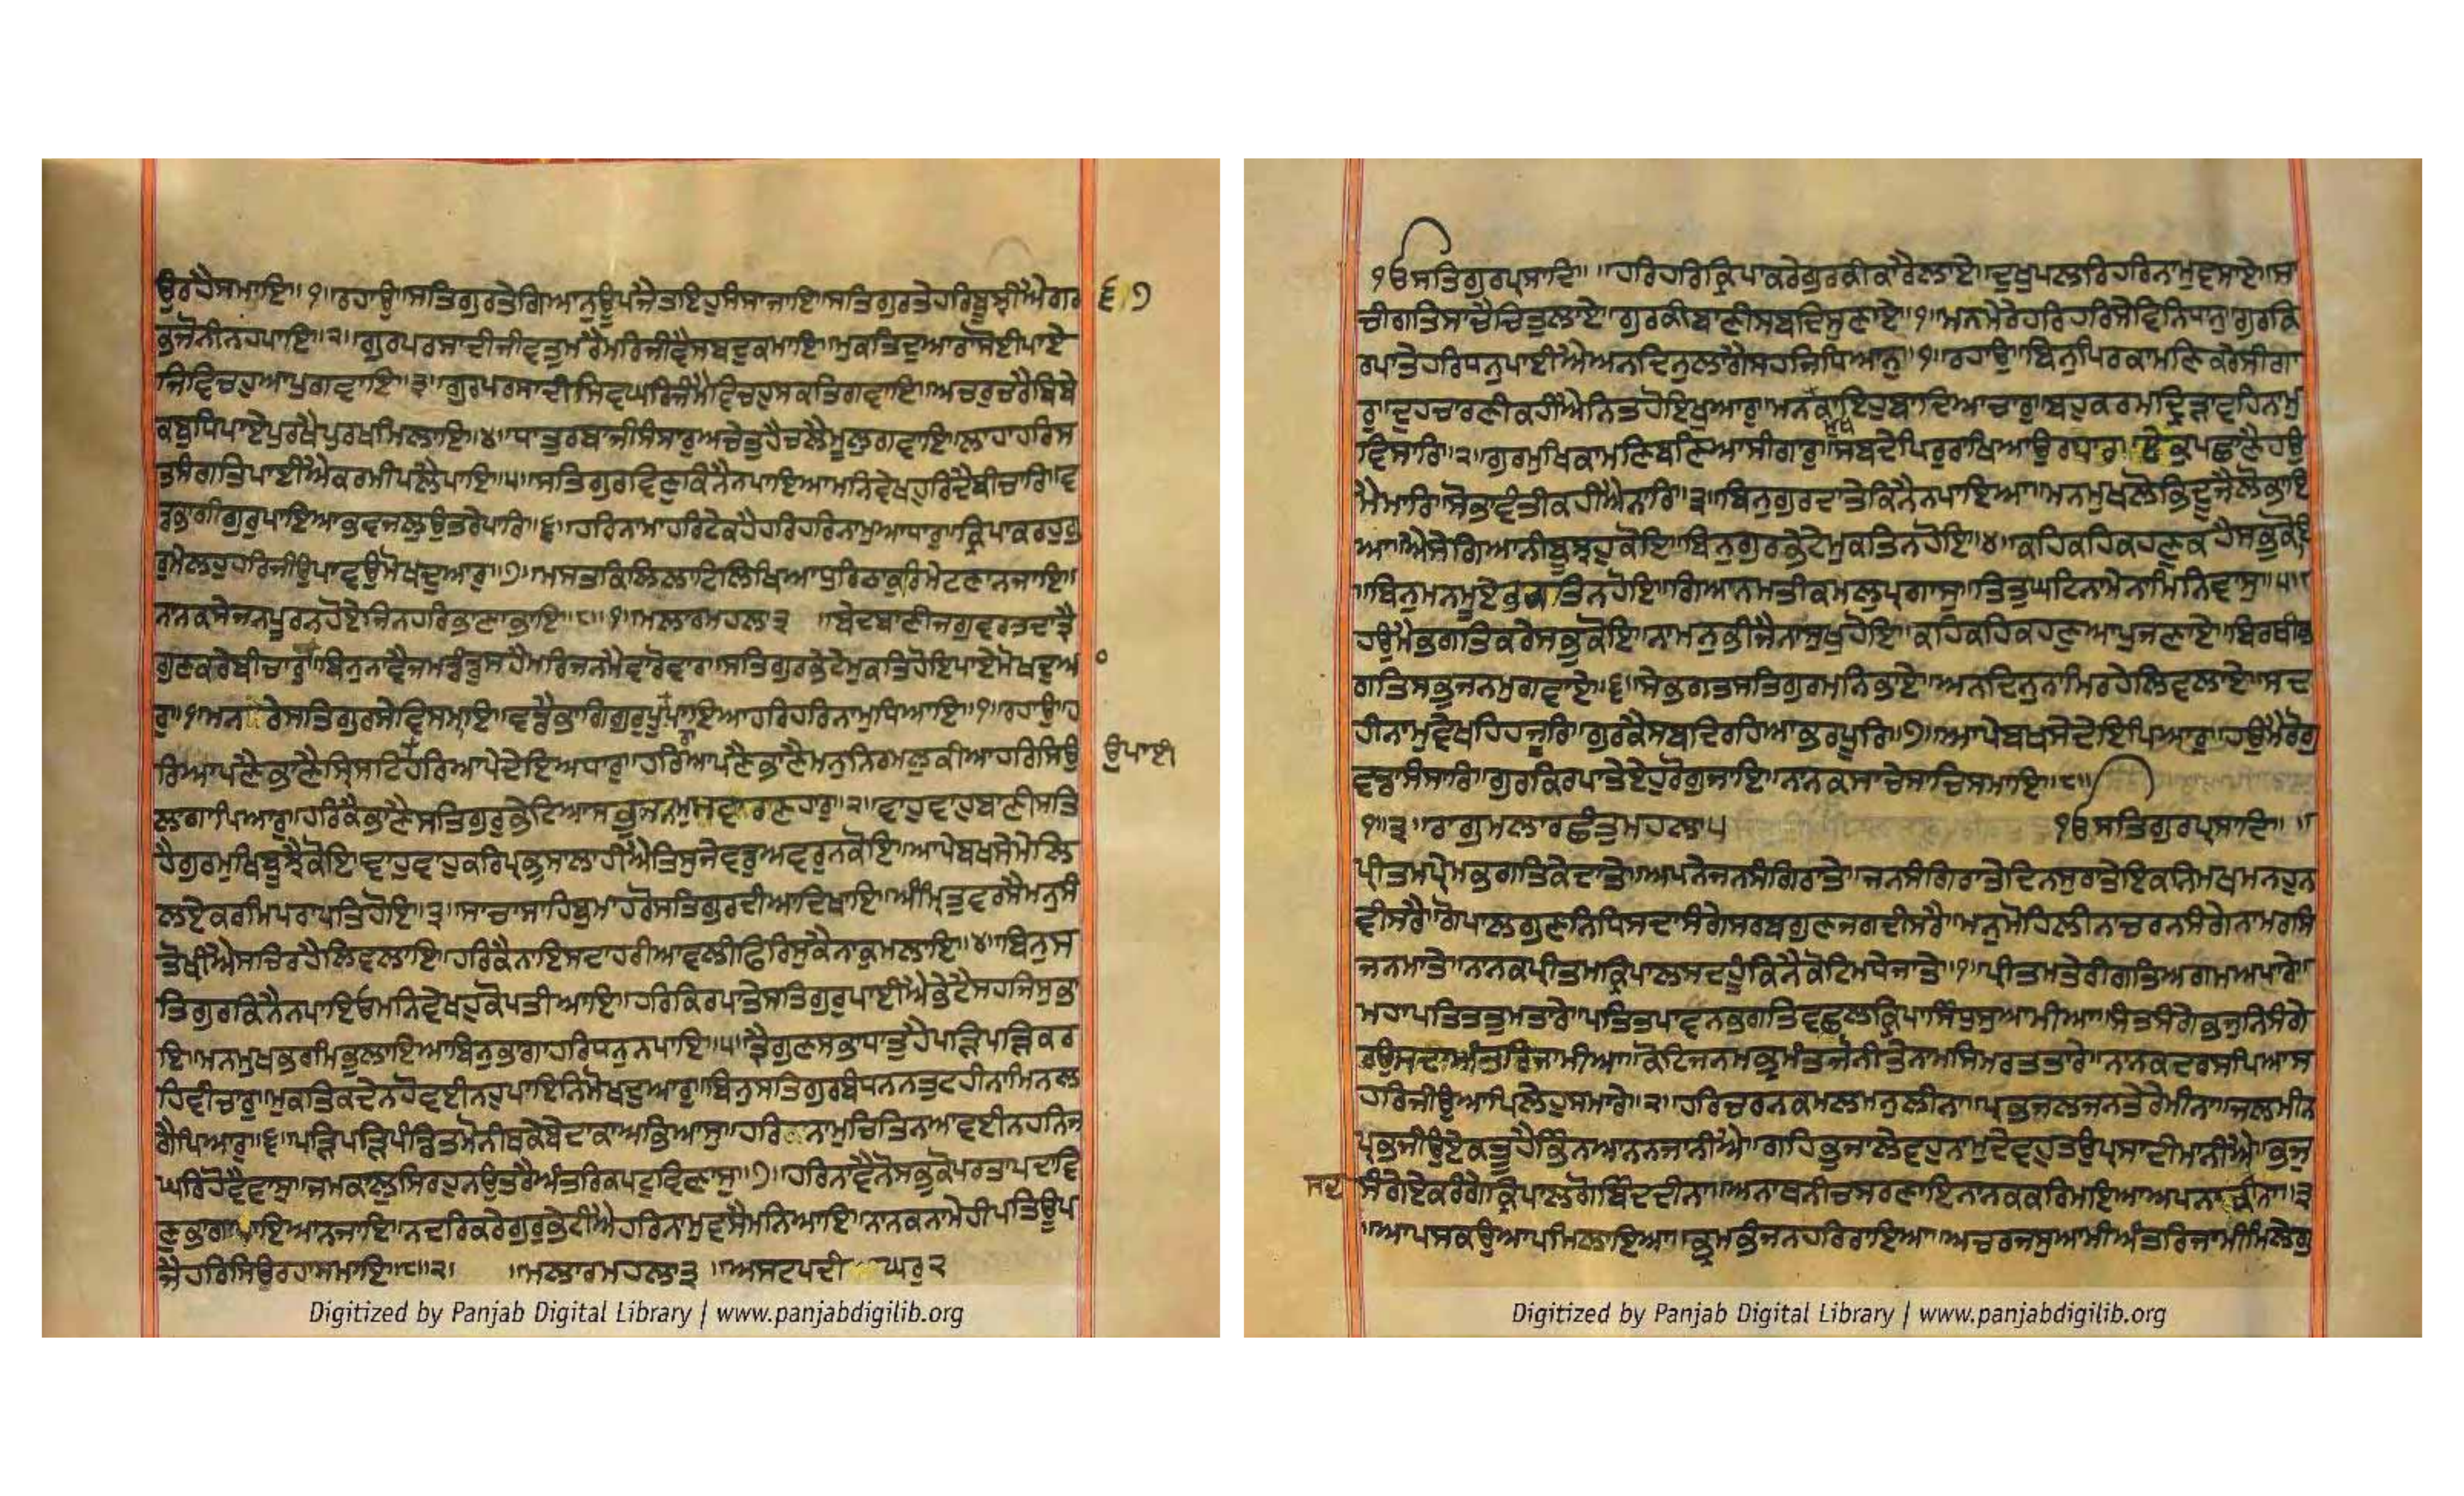 ਉਰਹੈਸਮਾਇ॥੧॥ਰਹਾਉ॥ਸਤਿਗੁਰਤੇਗਿਆਨੁਊਪਜੈਤਾਇਹੁਸੰਸਾਜਾਇ॥ਸਤਿਗੁਰਤੇਹਰਿਬੂਝੀਐਗਰ ੬੭
ਭਜੋਨੀਨਹਪਾਇ॥੨॥ਗੁਰਪਰਸਾਦੀਜੀਵਤੁਮਰੈਮਰਿਜੀਵੈਸਬਦੁਕਮਾਇ॥ਮੁਕਤਿਦੁਆਰਾਸੋਈਪਾਏ
ਜਿਵਿਚਹੁਆਪੁਗਵਾਇ॥੩॥ਗੁਰਪਰਸਾਦੀਸਿਵਘਰਿਜੰਮੈਵਿਚਹੁਸਕਤਿਗਵਾਇ॥ਅਚਰੁਚਰੈਬਿਬੇ
ਕਬੁਧਿਪਾਏਪੁਰਖੈਪੁਰਖਮਿਲਾਇ॥੪॥ਧਾਤੁਰਬਾਜੀਸੰਸਾਰੁਅਚੇਤੁਹੈਚਲੈਮੂਲੁਗਵਾਇ॥ਲਾਹਾਹਰਿਸ
ਤਸੰਗਤਿਪਾਈਐਕਰਮੀਪਲੈਪਾਇ॥੫॥ਸਤਿਗੁਰਵਿਣੁਕਿਨੈਨਪਾਇਆਮਨਿਵੇਖਹੁਰਿਦੈਬੀਚਾਰਿ॥ਵ
ਡਭਾਗੀਗੁਰੁਪਾਇਆਭਵਜਲੁਉਤਰੇਪਾਰਿ॥੬॥ਹਰਿਨਾਮਾਹਰਿਟੇਕਹੈਹਰਿਹਰਿਨਾਮੁਆਧਾਰੁ॥ਕ੍ਰਿਪਾਕਰਹੁਗੁ
ਰੁਮੇਲਹੁਹਰਿਜੀਉਪਾਵਉਮੋਖਦੁਆਰੁ॥੭॥ਮਸਤਕਿਲਿਲਾਟਿਲਿਖਿਆਧੁਰਿਠਾਕੁਰਿਮੇਟਣਾਨਜਾਇ॥
ਨਾਨਕਸੇਜਨਪੂਰਨਹੋਏਜਿਨਹਰਿਭਾਣਾਭਾਇ॥੮॥੧॥ਮਲਾਰਮਹਲਾ੩ ॥ਬੇਦਬਾਣੀਜਗੁਵਰਤਦਾਤ੍ਰੈ
ਗੁਣਕਰੇਬੀਚਾਰੁ॥ਬਿਨੁਨਾਵੈਜਮਡੰਡੁਸਹੈਮਰਿਜਨਮੈਵਾਰੋਵਾਰ॥ਸਤਿਗੁਰਭੇਟੇਮੁਕਤਿਹੋਇਪਾਏਮੋਖਦੁਆ ॰
ਰੁ॥੧॥ਮਨਰੇਸਤਿਗੁਰਸੇਵਿਸਮਾਇ॥ਵਡੈਭਾਗਿਗੁਰੁਪੂਰਾਪਾਇਆਹਰਿਹਰਿਨਾਮੁਧਿਆਇ॥੧॥ਰਹਾਉ॥ਹ
ਰਿਆਪਣੈਭਾਣੈਸ੍ਰਿਸਟਿਹਰਿਆਪੇਦੇਇਅਧਾਰੁ॥ਹਰਿਆਪਣੈਭਾਣੈਮਨੁਨਿਰਮਲੁਕੀਆਹਰਿਸਿਉ ਉਪਾਈ
ਲਾਗਾਪਿਆਰੁ॥ਹਰਿਕੈਭਾਣੈਸਤਿਗੁਰੁਭੇਟਿਆਸਭੁਜਨਮੁਸਵਾਰਣਹਾਰੁ॥੨॥ਵਾਹੁਵਾਹੁਬਾਣੀਸਤਿ
ਹੈਗੁਰਮੁਖਿਬੂਝੈਕੋਇ॥ਵਾਹੁਵਾਹੁਕਰਿਪ੍ਰਭੁਸਾਲਾਹੀਐਤਿਸੁਜੇਵਡੁਅਵਰੁਨਕੋਇ॥ਆਪੇਬਖਸੇਮੇਲਿ
ਲਏਕਰਮਿਪਰਾਪਤਿਹੋਇ॥੩॥ਸਾਚਾਸਾਹਿਬੁਮਾਹਰੋਸਤਿਗੁਰਦੀਆਦਿਖਾਇ॥ਅੰਮ੍ਰਿਤੁਵਰਸੈਮਨੁਸੰ
ਤੋਖੀਐਸਚਿਰਹੈਲਿਵਲਾਇ॥ਹਰਿਕੈਨਾਇਸਦਾਹਰੀਆਵਲੀਫਿਰਿਸੁਕੈਨਾਕੁਮਲਾਇ॥੪॥ਬਿਨੁਸ
ਤਿਗੁਰਕਿਨੈਨਪਾਇਓਮਨਿਵੇਖਹੁਕੋਪਤੀਆਇ॥ਹਰਿਕਿਰਪਾਤੇਸਤਿਗੁਰੁਪਾਈਐਭੇਟੈਸਹਜਿਸੁਭਾ
ਇ॥ਮਨਮੁਖਭਰਮਿਭੁਲਾਇਆਬਿਨੁਭਾਗਾਹਰਿਧਨੁਨਪਾਇ॥੫॥ਤ੍ਰੈਗੁਣਸਭਾਧਾਤੁਹੈਪੜਿਪੜਿਕਰ
ਹਿਵੀਚਾਰੁ॥ਮੁਕਤਿਕਦੇਨਹੋਵਈਨਹੁਪਾਇਨਿਮੋਖਦੁਆਰੁ॥ਬਿਨੁਸਤਿਗੁਰਬੰਧਨਨਤੁਟਹੀਨਾਮਿਨਲ
ਗੈਪਿਆਰੁ॥੬॥ਪੜਿਪੜਿਪੰਡਿਤਮੋਨੀਥਕੇਬੇਦਾਕਾਅਭਿਆਸੁ॥ਹਰਿਨਾਮੁਚਿਤਿਨਆਵਈਨਹਨਿਜ
ਘਰਿਹੋਵੈਵਾਸੁ॥ਜਮਕਾਲੁਸਿਰਹੁਨਉਤਰੈਅੰਤਰਿਕਪਟੁਵਿਣਾਸੁ॥੭॥ਹਰਿਨਾਵੈਨੋਸਭੁਕੋਪਰਤਾਪਦਾਵਿ
ਣੁਭਾਗਾਪਾਇਆਨਜਾਇ॥ਨਦਰਿਕਰੇਗੁਰੁਭੇਟੀਐਹਰਿਨਾਮੁਵਸੈਮਨਿਆਇ॥ਨਾਨਕਨਾਮੇਹੀਪਤਿਊਪ
ਜੈਹਰਿਸਿਉਰਹਾਸਮਾਇ॥੮॥੨॥ ॥ਮਲਾਰਮਹਲਾ੩॥ਅਸਟਪਦੀ ਘਰੁ੨
੧ਓਸਤਿਗੁਰਪ੍ਰਸਾਦਿ॥ ॥ਹਰਿਹਰਿਕ੍ਰਿਪਾਕਰੇਗੁਰਕੀਕਾਰੈਲਾਏ॥ਦੁਖੁਪਲਰਿਹਰਿਨਾਮੁਵਸਾਏ॥ਸਾ
ਚੀਗਤਿਸਾਚੈਚਿਤੁਲਾਏ॥ਗੁਰਕੀਬਾਣੀਸਬਦਿਸੁਣਾਏ॥੧॥ਮਨਮੇਰੇਹਰਿਹਰਿਸੇਵਿਨਿਧਾਨੁ॥ਗੁਰਕਿ
ਰਪਾਤੇਹਰਿਧਨੁਪਾਈਐਅਨਦਿਨੁਲਾਗੈਸਹਜਿਧਿਆਨੁ॥੧॥ਰਹਾਉ॥ਬਿਨੁਪਿਰਕਾਮਣਿਕਰੇਸੀਗਾ
ਰੁ॥ਦੁਹਚਾਰਣੀਕਹੀਐਨਿਤਹੋਇਖੁਆਰੁ॥ਮਨਮੁਖਕਾਇਹੁਬਾਦਿਆਚਾਰੁ॥ਬਹੁਕਰਮਦ੍ਰਿੜਾਵਹਿਨਾਮੁ
ਵਿਸਾਰਿ॥੨॥ਗੁਰਮੁਖਿਕਾਮਣਿਬਣਿਆਸੀਗਾਰੁ॥ਸਬਦੇਪਿਰੁਰਾਖਿਆਉਰਧਾਰਿ॥ਏਕੁਪਛਾਣੈਹਉ
ਮੈਮਾਰਿ॥ਸੋਭਾਵੰਤੀਕਹੀਐਨਾਰਿ॥੩॥ਬਿਨੁਗੁਰਦਾਤੇਕਿਨੈਨਪਾਇਆ॥ਮਨਮੁਖਲੋਭਿਦੂਜੈਲੋਭਾਇ
ਆ॥ਐਸੇਗਿਆਨੀਬੂਝਹੁਕੋਇ॥ਬਿਨੁਗੁਰਭੇਟੇਮੁਕਤਿਨਹੋਇ॥੪॥ਕਹਿਕਹਿਕਹਣੁਕਹੈਸਭੁਕੋਇ
॥ਬਿਨੁਮਨਮੂਏਭਗਤਿਨਹੋਇ॥ਗਿਆਨਮਤੀਕਮਲੁਪ੍ਰਗਾਸੁ॥ਤਿਤੁਘਟਿਨਾਮੈਨਾਮਿਨਿਵਾਸੁ॥੫॥
ਹਉਮੈਭਗਤਿਕਰੇਸਭੁਕੋਇ॥ਨਾਮਨੁਭੀਜੈਨਾਸੁਖੁਹੋਇ॥ਕਹਿਕਹਿਕਹਣੁਆਪੁਜਣਾਏ॥ਬਿਰਥੀਭ
ਗਤਿਸਭੁਜਨਮੁਗਵਾਏ॥੬॥ਸੇਭਗਤਸਤਿਗੁਰਮਨਿਭਾਏ॥ਅਨਦਿਨੁਨਾਮਿਰਹੇਲਿਵਲਾਏ॥ਸਦ
ਹੀਨਾਮੁਵੇਖਹਿਹਜੂਰਿ॥ਗੁਰਕੈਸਬਦਿਰਹਿਆਭਰਪੂਰਿ॥੭॥ਆਪੇਬਖਸੇਦੇਇਪਿਆਰੁ॥ਹਉਮੈਰੋਗੁ
ਵਡਾਸੰਸਾਰਿ॥ਗੁਰਕਿਰਪਾਤੇਏਹੁਰੋਗੁਜਾਇ॥ਨਾਨਕਸਾਚੇਸਾਚਿਸਮਾਇ॥੮॥
੧॥੩॥ਰਾਗੁਮਲਾਰਛੰਤਮਹਲਾ੫ ੧ਓਸਤਿਗੁਰਪ੍ਰਸਾਦਿ॥ ॥
ਪ੍ਰੀਤਮਪ੍ਰੇਮਭਗਤਿਕੇਦਾਤੇ॥ਅਪਨੇਜਨਸੰਗਿਰਾਤੇ॥ਜਨਸੰਗਿਰਾਤੇਦਿਨਸੁਰਾਤੇਇਕਨਿਮਖਮਨਹੁਨ
ਵੀਸਰੈ॥ਗੋਪਾਲਗੁਣਨਿਧਿਸਦਾਸੰਗੇਸਰਬਗੁਣਜਗਦੀਸਰੈ॥ਮਨੁਮੋਹਿਲੀਨਾਚਰਨਸੰਗੇਨਾਮਰਸਿ
ਜਨਮਾਤੇ॥ਨਾਨਕਪ੍ਰੀਤਮਕ੍ਰਿਪਾਲਸਦਹੂੰਕਿਨੈਕੋਟਿਮਧੇਜਾਤੇ॥੧॥ਪ੍ਰੀਤਮਤੇਰੀਗਤਿਅਗਮਅਪਾਰੇ॥
ਮਹਾਪਤਿਤਤੁਮਤਾਰੇ॥ਪਤਿਤਪਾਵਨਭਗਤਿਵਛਲਕ੍ਰਿਪਾਸਿੰਧੁਸੁਆਮੀਆ॥ਸੰਤਸੰਗੇਭਜੁਨਿਸੰਗੇ
ਰਉਸਦਾਅੰਤਰਿਜਾਮੀਆ॥ਕੋਟਿਜਨਮਭ੍ਰਮੰਤਜੋਨੀਤੇਨਾਮਸਿਮਰਤਤਾਰੇ॥ਨਾਨਕਦਰਸਪਿਆਸ
ਹਰਿਜੀਉਆਪਿਲੇਹੁਸਮਾਰੇ॥੨॥ਹਰਿਚਰਨਕਮਲਮਨੁਲੀਨਾ॥ਪ੍ਰਭਜਲਜਨਤੇਰੇਮੀਨਾ॥ਜਲਮੀਨ
ਪ੍ਰਭਜੀਉਏਕਤੂਹੈਭਿੰਨਆਨਨਜਾਨੀਐ॥ਗਹਿਭੁਜਾਲੇਵਹੁਨਾਮੁਦੇਵਹੁਤਉਪ੍ਰਸਾਦੀਮਾਨੀਐ॥ਭਜੁ
ਸੰਗੇਏਕਰੰਗੇਕ੍ਰਿਪਾਲਗੋਬਿੰਦਦੀਨਾ॥ਅਨਾਥਨੀਚਸਰਣਾਇਨਾਨਕਕਰਿਮਇਆਅਪਨਾਕੀਨਾ॥੩
॥ਆਪਸਕਉਆਪਮਿਲਾਇਆ॥ਭ੍ਰਮਭੰਜਨਹਰਿਰਾਇਆ॥ਅਚਰਜਸੁਆਮੀਅੰਤਰਿਜਾਮੀਮਿਲੇਗੁ
Digitized by Panjab Digital Library | www.panjabdigilib.org
Digitized by Panjab Digital Library | www.panjabdigilib.org